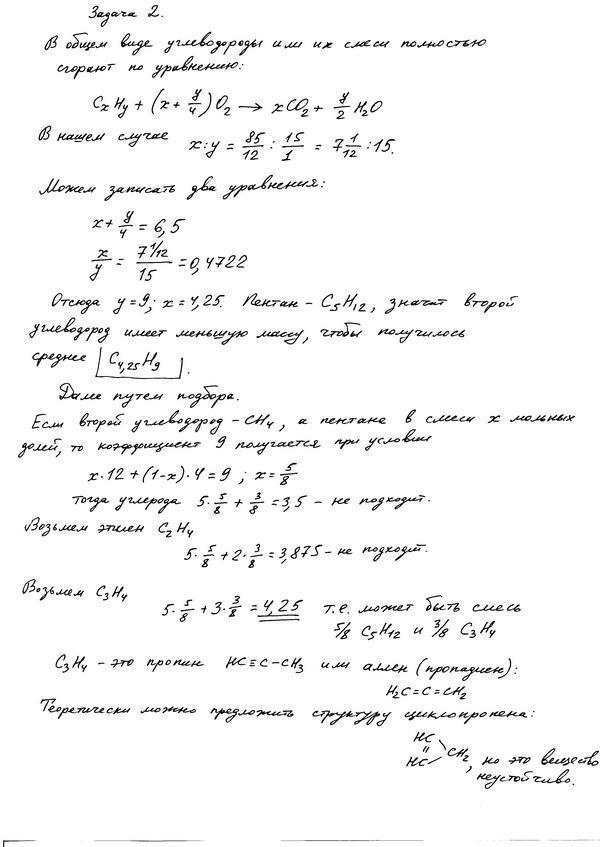 Задача 2.
В общем виде углеводороды или их смеси полностью
сгорают по уравнению:
CxHy + (x + y/4) O2 → xCO2 + y/2 H2O
В нашем случае x:y = 85/12 : 15/1 = 7 1/12 : 15.
Можем записать два уравнения:
x + y/4 = 6,5
x/y = 7 1/12 / 15 = 0,4722
Отсюда y=9; x=4,25. Пентан – C5H12, значит второй
углеводород имеет меньшую массу, чтобы получилось
среднее C4,25H9.
Далее путем подбора.
Если второй углеводород – CH4, а пентана в смеси x мольных
долей, то коэффициент 9 получается при условии
x·12 + (1-x)·4 = 9 ; x = 5/8
Тогда углерода 5·5/8 + 3/8 = 3,5 – не подходит.
Возьмем этилен C2H4
5·5/8 + 2·3/8 = 3,875 – не подходит.
Возьмем C3H4
5·5/8 + 3·3/8 = 4,25 т.е. может быть смесь
5/8 C5H12 и 3/8 C3H4
C3H4 – это пропин HC≡C–CH3 или аллен (пропадиен):
H2C=C=CH2
Теоретически можно предложить структуру циклопропена:
HC
=
HC
CH2, но это вещество
неустойчиво.